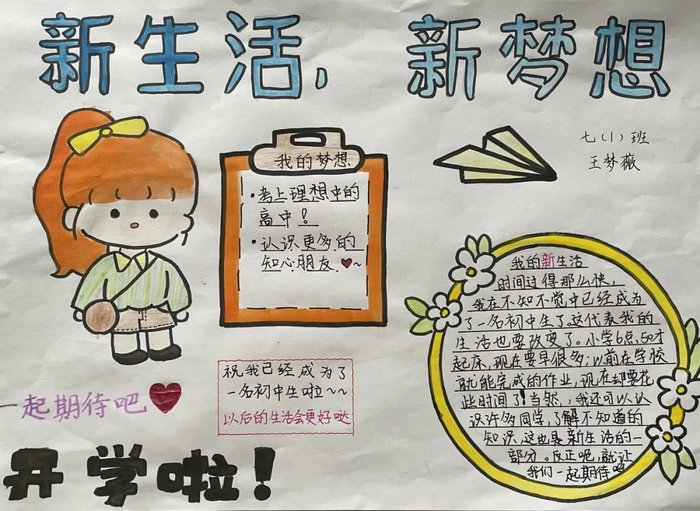 新生活，新梦想
七（1）班
王梦薇
我的梦想
·考上理想中的
高中！
·认识更多的
知心朋友
我的新生活
时间过得那么快，
我在不知不觉中已经成为
了一名初中生了。这代表我的
生活也要改变了。小学6点50才
起床，现在要早很多；以前在学校
就能完成的作业，现在却要花
些时间了！当然，我还可以认
识许多同学，了解不知道的
知识，这也是新生活的一
部分。反正呢，就让
我们一起期待吧
祝我已经成为了
一名初中生啦～～
以后的生活会更好哒
一起期待吧
开学啦！